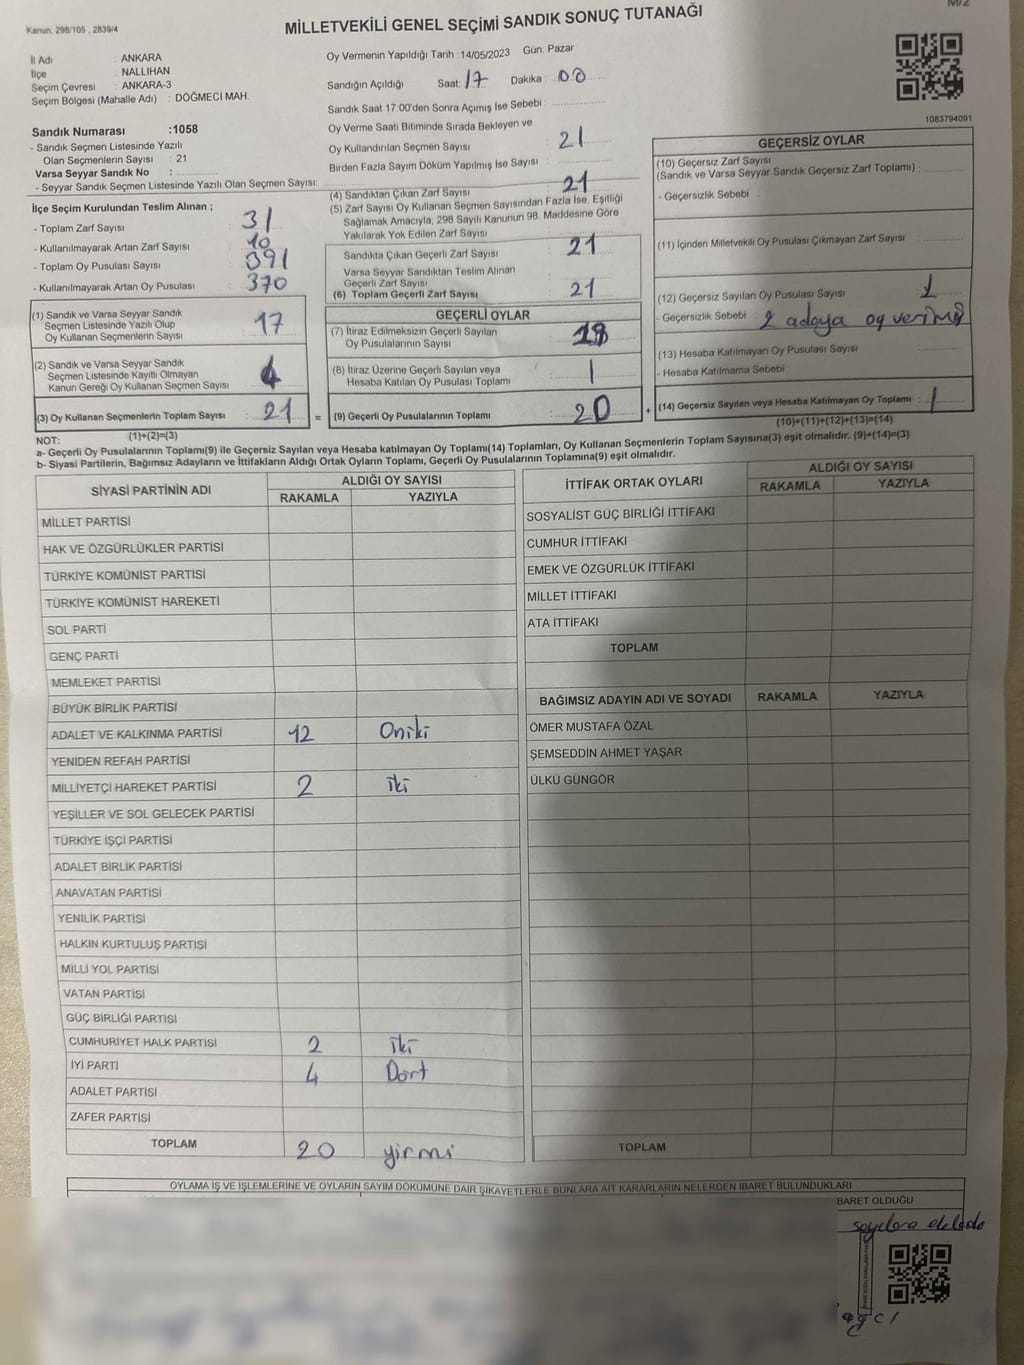 Kanun, 298/105 , 2839/4
M/2
MİLLETVEKİLİ GENEL SEÇİMİ SANDIK SONUÇ TUTANAĞI
İl Adı : ANKARA
İlçe : NALLIHAN
Seçim Çevresi : ANKARA-3
Seçim Bölgesi (Mahalle Adı) : DÖĞMECİ MAH.
Sandık Numarası :1058
- Sandık Seçmen Listesinde Yazılı
Olan Seçmenlerin Sayısı : 21
Varsa Seyyar Sandık No :
- Seyyar Sandık Seçmen Listesinde Yazılı Olan Seçmen Sayısı:
İlçe Seçim Kurulundan Teslim Alınan ;
- Toplam Zarf Sayısı : 31
- Kullanılmayarak Artan Zarf Sayısı : 10
- Toplam Oy Pusulası Sayısı : 391
- Kullanılmayarak Artan Oy Pusulası : 370
(1) Sandık ve Varsa Seyyar Sandık
Seçmen Listesinde Yazılı Olup
Oy Kullanan Seçmenlerin Sayısı : 17
(2) Sandık ve Varsa Seyyar Sandık
Seçmen Listesinde Kayıtlı Olmayan
Kanun Gereği Oy Kullanan Seçmen Sayısı : 4
(3) Oy Kullanan Seçmenlerin Toplam Sayısı : 21 =
(1)+(2)=(3)
Oy Vermenin Yapıldığı Tarih :14/05/2023 Gün: Pazar
Sandığın Açıldığı Saat: 17 Dakika : 00
Sandık Saat 17:00'den Sonra Açımış İse Sebebi :
Oy Verme Saati Bitiminde Sırada Bekleyen ve
Oy Kullandırılan Seçmen Sayısı : 21
Birden Fazla Sayım Döküm Yapılmış İse Sayısı :
(4) Sandıktan Çıkan Zarf Sayısı : 21
(5) Zarf Sayısı Oy Kullanan Seçmen Sayısından Fazla İse, Eşitliği
Sağlamak Amacıyla, 298 Sayılı Kanunun 98. Maddesine Göre
Yakılarak Yok Edilen Zarf Sayısı :
Sandıkta Çıkan Geçerli Zarf Sayısı : 21
Varsa Seyyar Sandıktan Teslim Alınan
Geçerli Zarf Sayısı :
(6) Toplam Geçerli Zarf Sayısı : 21
GEÇERLİ OYLAR
(7) İtiraz Edilmeksizin Geçerli Sayılan
Oy Pusulalarının Sayısı :
(8) İtiraz Üzerine Geçerli Sayılan veya
Hesaba Katılan Oy Pusulası Toplamı : 1
(9) Geçerli Oy Pusulalarının Toplamı : 20 +
1083794091
GEÇERSİZ OYLAR
(10) Geçersiz Zarf Sayısı
(Sandık ve Varsa Seyyar Sandık Geçersiz Zarf Toplamı) :
- Geçersizlik Sebebi :
(11) İçinden Milletvekili Oy Pusulası Çıkmayan Zarf Sayısı :
(12) Geçersiz Sayılan Oy Pusulası Sayısı : 1
- Geçersizlik Sebebi : 2 adaya oy
(13) Hesaba Katılmayan Oy Pusulası Sayısı :
- Hesaba Katılmama Sebebi :
(14) Geçersiz Sayılan veya Hesaba Katılmayan Oy Toplamı : 1
(10)+(11)+(12)+(13)=(14)
NOT:
a- Geçerli Oy Pusulalarının Toplamı(9) ile Geçersiz Sayılan veya Hesaba katılmayan Oy Toplamı(14) Toplamları, Oy Kullanan Seçmenlerin Toplam Sayısına(3) eşit olmalıdır. (9)+(14)=(3)
b- Siyasi Partilerin, Bağımsız Adayların ve İttifakların Aldığı Ortak Oyların Toplamı, Geçerli Oy Pusulalarının Toplamına(9) eşit olmalıdır.
SİYASİ PARTİNİN ADI
ALDIĞI OY SAYISI
RAKAMLA YAZIYLA
MİLLET PARTİSİ
HAK VE ÖZGÜRLÜKLER PARTİSİ
TÜRKİYE KOMÜNİST PARTİSİ
TÜRKİYE KOMÜNİST HAREKETİ
SOL PARTİ
GENÇ PARTİ
MEMLEKET PARTİSİ
BÜYÜK BİRLİK PARTİSİ
ADALET VE KALKINMA PARTİSİ 12 Oniki
YENİDEN REFAH PARTİSİ
MİLLİYETÇİ HAREKET PARTİSİ 2 iki
YEŞİLLER VE SOL GELECEK PARTİSİ
TÜRKİYE İŞÇİ PARTİSİ
ADALET BİRLİK PARTİSİ
ANAVATAN PARTİSİ
YENİLİK PARTİSİ
HALKIN KURTULUŞ PARTİSİ
MİLLİ YOL PARTİSİ
VATAN PARTİSİ
GÜÇ BİRLİĞİ PARTİSİ
CUMHURİYET HALK PARTİSİ 2 iki
İYİ PARTİ 4 Dört
ADALET PARTİSİ
ZAFER PARTİSİ
TOPLAM 20 yirmi
İTTİFAK ORTAK OYLARI
ALDIĞI OY SAYISI
RAKAMLA YAZIYLA
SOSYALİST GÜÇ BİRLİĞİ İTTİFAKI
CUMHUR İTTİFAKI
EMEK VE ÖZGÜRLÜK İTTİFAKI
MİLLET İTTİFAKI
ATA İTTİFAKI
TOPLAM
BAĞIMSIZ ADAYIN ADI VE SOYADI RAKAMLA YAZIYLA
ÖMER MUSTAFA ÖZAL
ŞEMSEDDİN AHMET YAŞAR
ÜLKÜ GÜNGÖR
TOPLAM
OYLAMA İŞ VE İŞLEMLERİNE VE OYLARIN SAYIM DÖKÜMÜNE DAİR ŞİKAYETLERLE BUNLARA AİT KARARLARIN NELERDEN İBARET BULUNDUKLARI
BARET OLDUĞU